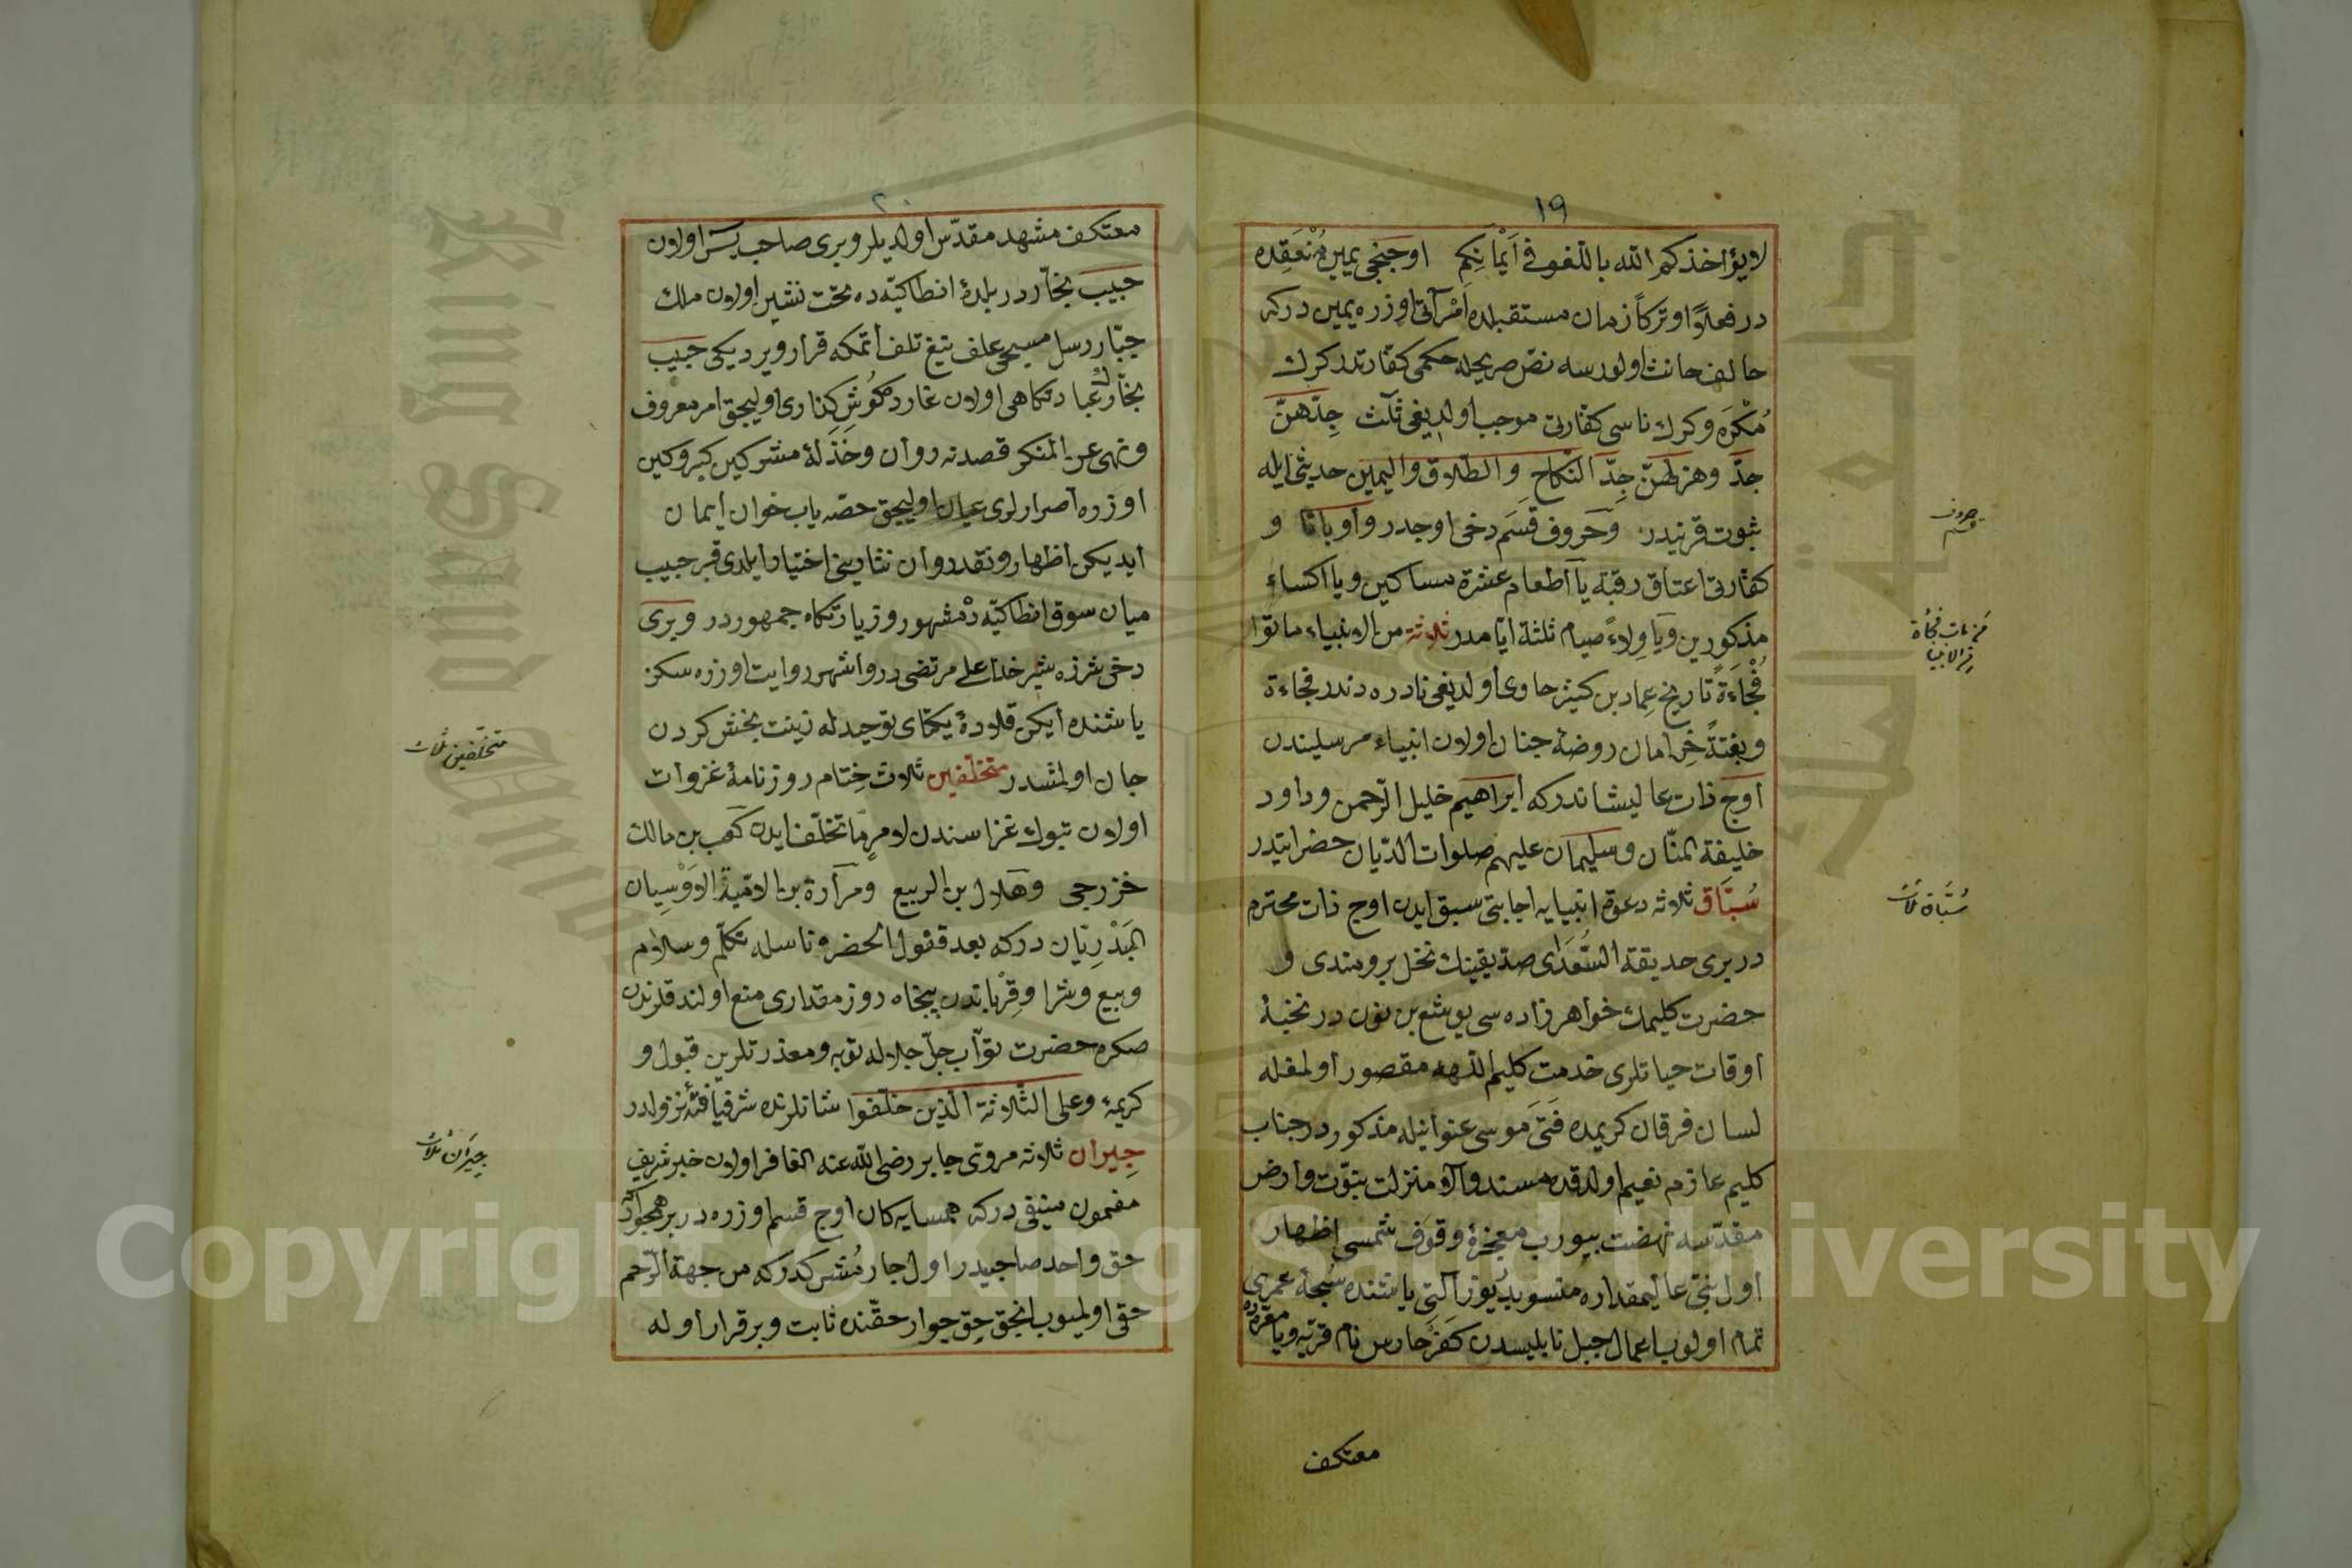 ١٩
لا يؤاخذكم الله باللغو فى اَيْمانِكم اوجنجى يمين مُنْعَقِده
در فعلاً او تركاً زمان مستقبلده اَمْرآتى اوزره يمين دركه
حالف حانث اولورسه نص صريحله حكمى كفارتدر كرك
مُكْرَه وكرك ناسى كفارتى موجب اولديغى ثلث جِدّهنّ
جدّ وهزلهنّ جدّ النكاح والطلاق واليمين حديثى ايله
ثبوت قرنيدر وحروف قَسَم دخى اوجدر واو با تا و
كفارتى اعتاق رقبة يا اطعام عشرة مساكين ويا اكساء
مذكورين ويا وِلاءً صيام ثلثة ايامدر ثلاثة من الانبياء ماتوا
فُجْاءَةً تاريخ عماد بن كثير حاوى اولديغى نادره دندر فجاءة
وبغتةً خرامان روضهٔ جنان اولان انبياء مرسليندن
اوج ذات عاليشاندركه ابراهيم خليل الرّحمن وداود
خليفة المنّان وسليمان عليهم صلوات الديّان حضراتيدر
سُبّاق ثلاثه دعوة انبيايه اجابتى سبق ايدن اوج ذات محترم
در برى حديقة السُّعَداى صديقينك نخل برومندى و
حضرت كليمك خواهرزاده سى يوشع بن نون در نخبهٔ
اوقات حياتلرى خدمت كليم اللهه مقصور اولمغله
لسان فرقان كريمده فَتَى مَوسى عنوانيله مذكوردر جناب
كليم عازم نعيم اولدقده مسند والا منزلت نبوّت وارض
مقدّسه نهضت بيورب معجزهٔ وقوف شمسى اظهار
اول نبىّ عاليمقداره منسوبدر يوز آلتى ياشنده سُبحهٔ عمرى
تمام اولوب اعمال جبل نابليسدن كَفَرْ حارس نام قريه ويا معرّده
معتكف
حروف قسم
من مات فجأة من الانبيا
سُبَّاق ثلاث
٢٠
معتكف مشهد مقدّس اولديلر وبرى صاحب يس اولان
حبيب نجّار در بلدهٔ انطاكيّه ده تخت نشين اولان ملك
جبّار رسل مسيحى علف تيغ تلف اتمكه قرار ويرديكى حبيب
نجّارك عبادتكاهى اولان غارده كُوش كذارى اوليجق امر معروف
ونهى عن المنكر قصدنه روان وخَذَلهٔ مشركين كبر وكين
اوزره اصرارلرى عيان اوليجق حصه ياب خوان ايمان
ايديكن اظهار ونقد روان نثارينى اختيار ايلدى قبر حبيب
ميان سوق انطاكيّه دْ مشهور وزيارتكاه جمهوردر وبرى
دخى شرزه شير خدا على مرتضى در واشهر روايت اوزره سكز
ياشنده ايكن قلادهٔ يكتاى توحيدله زينت بخش كردن
جان اولمشدر متخلّفين ثلاث خِتام روزنامهٔ غزوات
اولان تبوك غزاسندن لامرٍ ما تخلّف ايدن كعب بن مالك
خزرجى وهلال بن الربيع ومرارة بن الاميّة الاَوْسِيان
البَدْرِيّان دركه بعد قفول الحضر ناسله تكلّم وسلام
وبيع وشرا وقِرْباندن پنجاه روز مقدارى منع اولندقلرندن
صكره حضرت توّاب جلّ جلاله توبه ومعذرتلرين قبول و
كريمهٔ وعلى الثّلاثة الّذين خلّفوا شانلرنده شرفيافتهٔ نزولدر
جيران ثلاثه مروىّ جابر رضى الله عنه الغافر اولان خبر شريف
مضمون منيفى دركه همسايه كان اوج قسم اوزره در بر همجوارْ
حق واحد صاحبيدر اول جار مُشركدركه من جهة الرّحم
حقى اولميوب انجق حقّ جوار حقّنده ثابت وبرقرار اوله
متخلّفين ثلاث
جيرانُ ثلاث